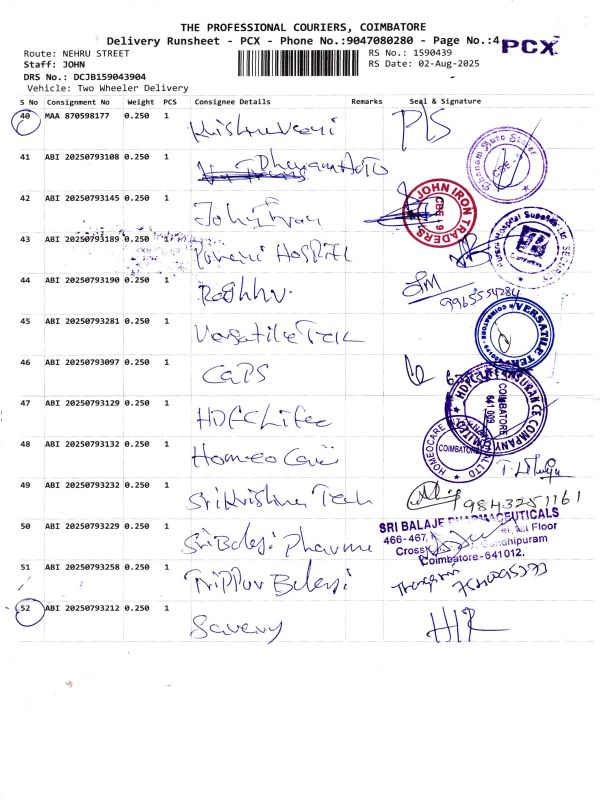 THE PROFESSIONAL COURIERS, COIMBATORE
Delivery Runsheet - PCX - Phone No.:9047080280 - Page No.:4 PCX
Route: NEHRU STREET RS No.: 1590439
Staff: JOHN RS Date: 02-Aug-2025
DRS No.: DCJB159043904
Vehicle: Two Wheeler Delivery
S No Consignment No Weight PCS Consignee Details Remarks Seal & Signature
40 MAA 870598177 0.250 1 PLS
41 ABI 20250793108 0.250 1 Dhanam Auto
42 ABI 20250793145 0.250 1 John Iron JOHN IRON TRADERS CBE 9
43 ABI 20250793189 0.250 1 Hospital
44 ABI 20250793190 0.250 1 Raghhu. 9965554284
45 ABI 20250793281 0.250 1 Versatile Teck VERSATILE COIMBATORE
46 ABI 20250793097 0.250 1 CaPS
47 ABI 20250793129 0.250 1 HDFC Life HDFC LIFE INSURANCE COMPANY LIMITED COIMBATORE 641 009
48 ABI 20250793132 0.250 1 Homeo Care HOMEOCARE COIMBATORE
49 ABI 20250793232 0.250 1 Sri Krishna Tech 9843251161
50 ABI 20250793229 0.250 1 Sri Balaji Pharma SRI BALAJE PHARMACEUTICALS
466-467, 1st Floor
Cross Gandhipuram
Coimbatore-641012.
51 ABI 20250793258 0.250 1 Trippur Balaji
52 ABI 20250793212 0.250 1